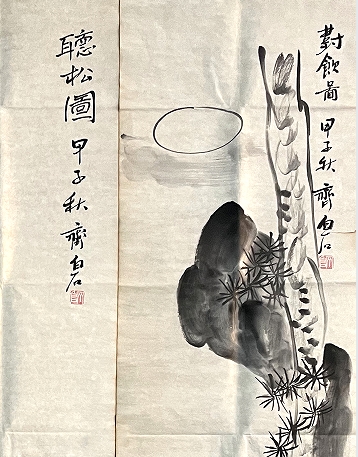 對飲圖 甲子秋 齊白石
聽松圖 甲子秋 齊白石